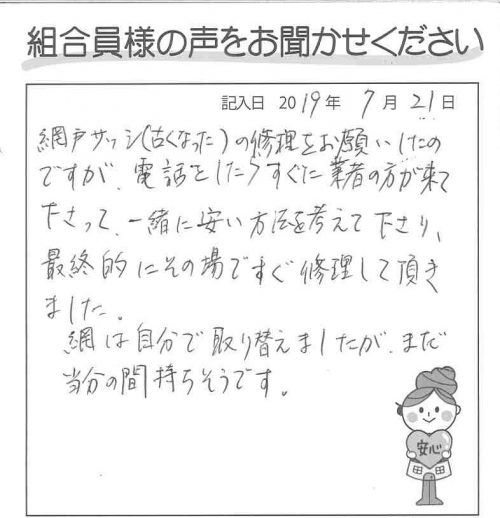 組合員様の声をお聞かせください
記入日 2019年 7月 21日
網戸サッシ(古くなった)の修理をお願いしたの
ですが、電話をしたらすぐに業者の方が来て
下さって、一緒に安い方法を考えて下さり、
最終的にその場ですぐ修理して頂き
ました。
網は自分で取り替えましたが、まだ
当分の間持ちそうです。
安心